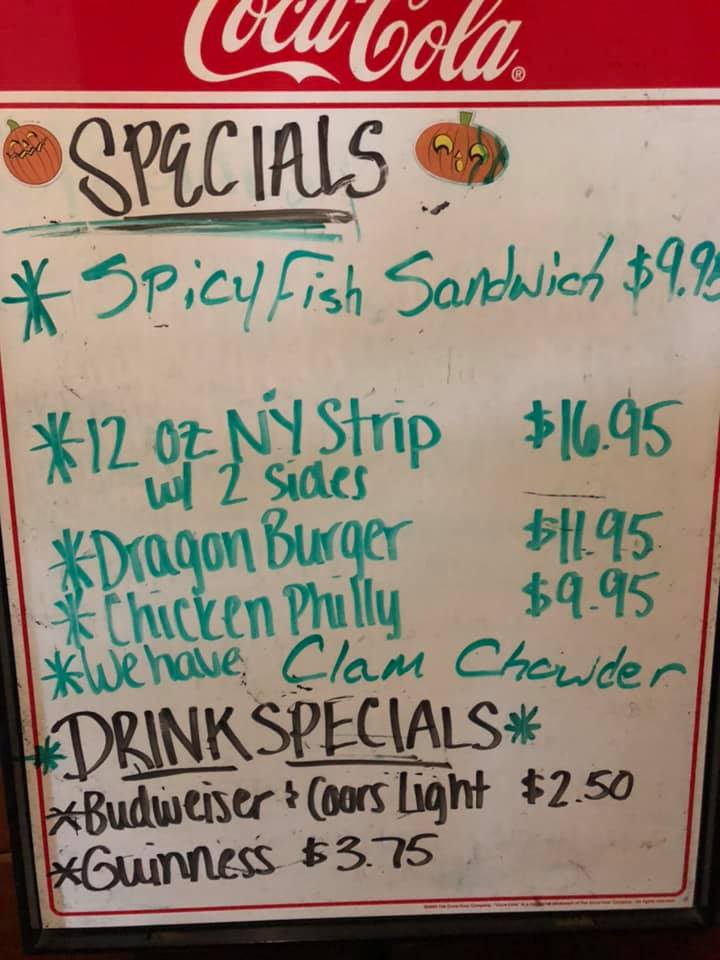 Coca-Cola®
SPECIALS
* Spicy Fish Sandwich $9.95
*12 oz NY Strip $16.95
w/ 2 sides
*Dragon Burger $11.95
*Chicken Philly $9.95
*We have Clam Chowder
*DRINK SPECIALS*
*Budweiser & Coors Light $2.50
*Guinness $3.75